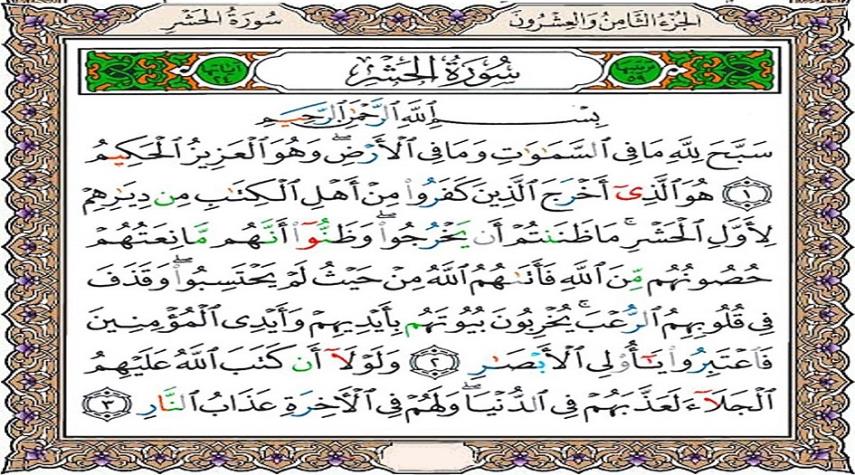 الجزء الثامن والعشرون
سورة الحشر
ترتيبها ٥٩
سُورَةُ الحَشْرِ
آياتها ٢٤
بِسْمِ ٱللَّهِ ٱلرَّحْمَٰنِ ٱلرَّحِيمِ
سَبَّحَ لِلَّهِ مَا فِي ٱلسَّمَٰوَٰتِ وَمَا فِي ٱلْأَرْضِۖ وَهُوَ ٱلْعَزِيزُ ٱلْحَكِيمُ
١ هُوَ ٱلَّذِيٓ أَخْرَجَ ٱلَّذِينَ كَفَرُوا۟ مِنْ أَهْلِ ٱلْكِتَٰبِ مِن دِيَٰرِهِمْ
لِأَوَّلِ ٱلْحَشْرِۚ مَا ظَنَنتُمْ أَن يَخْرُجُوا۟ۖ وَظَنُّوٓا۟ أَنَّهُم مَّانِعَتُهُمْ
حُصُونُهُم مِّنَ ٱللَّهِ فَأَتَىٰهُمُ ٱللَّهُ مِنْ حَيْثُ لَمْ يَحْتَسِبُوا۟ۖ وَقَذَفَ
فِي قُلُوبِهِمُ ٱلرُّعْبَۚ يُخْرِبُونَ بُيُوتَهُم بِأَيْدِيهِمْ وَأَيْدِي ٱلْمُؤْمِنِينَ
فَٱعْتَبِرُوا۟ يَٰٓأُو۟لِي ٱلْأَبْصَٰرِ ٢ وَلَوْلَآ أَن كَتَبَ ٱللَّهُ عَلَيْهِمُ
ٱلْجَلَآءَ لَعَذَّبَهُمْ فِي ٱلدُّنْيَاۖ وَلَهُمْ فِي ٱلْءَاخِرَةِ عَذَابُ ٱلنَّارِ ٣